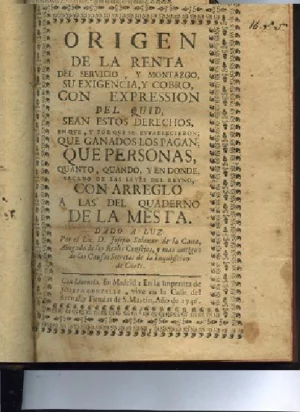 16. N.º 5º
ORIGEN
DE LA RENTA
DEL SERVICIO, Y MONTAZGO,
SU EXIGENCIA, Y COBRO,
CON EXPRESSION
DEL QUID,
SEAN ESTOS DERECHOS,
EN QUE, Y POR QUE SE ESTABLECIERON,
QUE GANADOS LOS PAGAN,
QUE PERSONAS,
QUANTO, QUANDO, Y EN DONDE,
SACADO DE LAS LEYES DEL REYNO,
CON ARREGLO
A LAS DEL QUADERNO
DE LA MESTA.
DADO A LUZ
Por el Lic. D. Joseph de la
Abogado de los Reales Consejos, y mas antiguo
de las Causas Secretas de la Inquisicion
de Corte.
Con Licencia. En Madrid: En la Imprenta de
vive en la Calle del
S. Martin, Año de